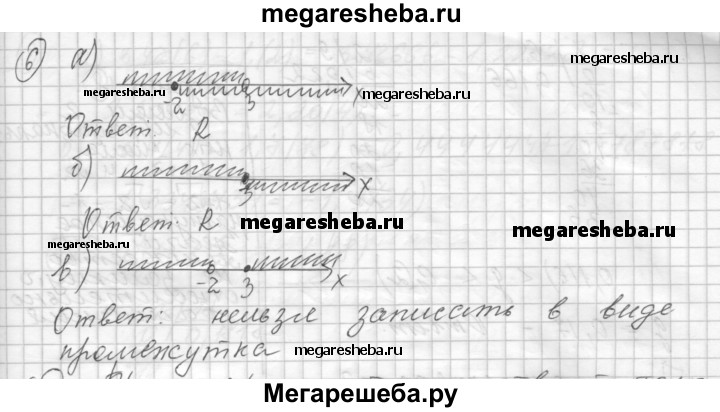 megaresheba.ru
6 а)
megaresheba.ru
megaresheba.ru
-2 3 x
megaresheba.ru
Ответ: R
б)
3 x
Ответ: R
megaresheba.ru
megaresheba.ru
megaresheba.ru
в)
-2 3 x
Ответ: нельзя записать в виде
промежутка
megaresheba.ru
Мегарешеба.ру